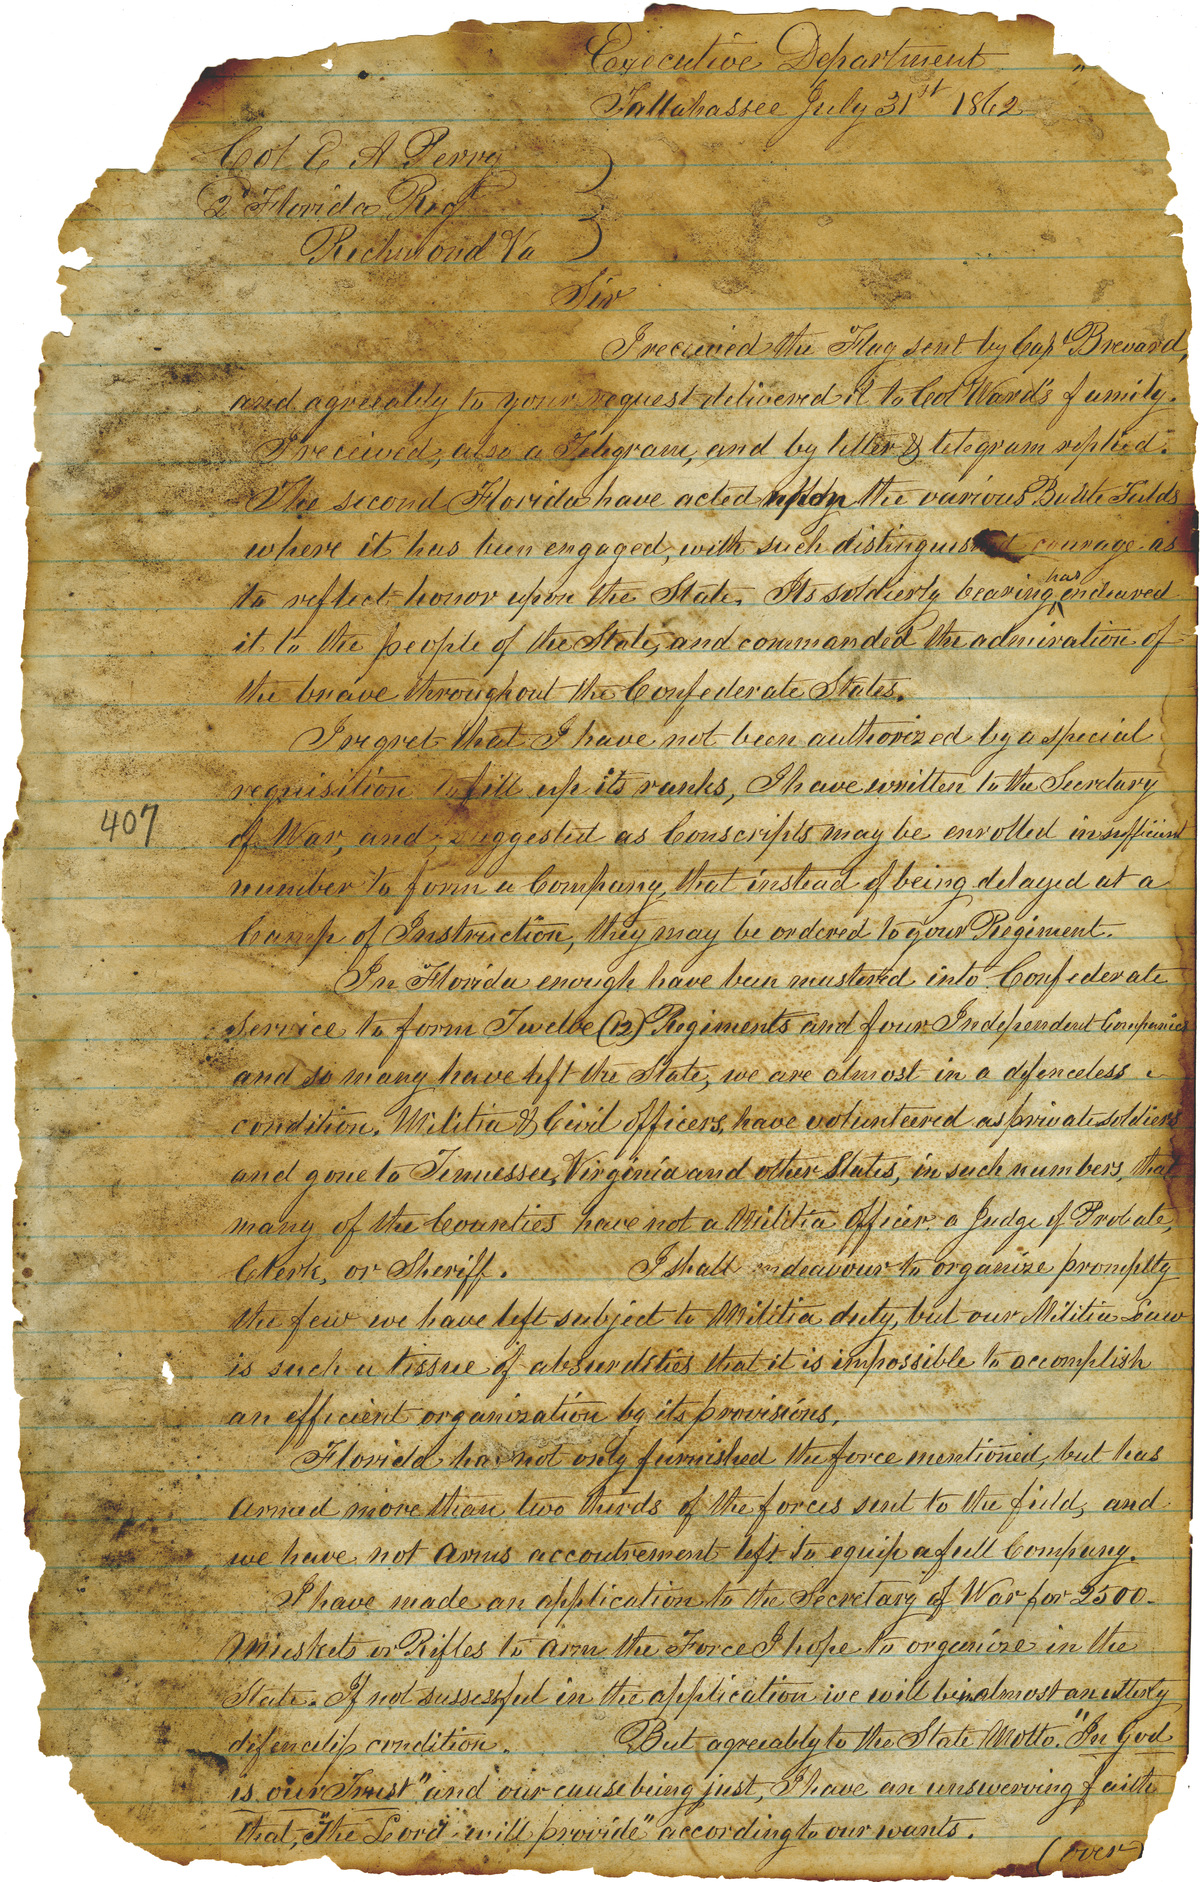 Executive Department
Tallahassee July 31st 1862
Col E A Perry
2d Florida Regt
Richmond Va
Sir
I received the Flag sent by Cap Brevard,
and agreeably to your request delivered it to Col Ward's family.
I received, also a Telegram, and by letter & telegram replied.
The second Florida have acted upon the various Battle Fields
where it has been engaged, with such distinguished courage as
to reflect honor upon the State. Its soldierly bearing has endeared
it to the people of the State, and commanded the admiration of
the brave throughout the Confederate States.
I regret that I have not been authorized by a special
requisition to fill up its ranks, I have written to the Secretary
of War, and suggested as Conscripts may be enrolled in sufficient
number to form a Company, that instead of being delayed at a
Camp of Instruction, they may be ordered to your Regiment.
In Florida enough have been mustered into Confederate
service to form Twelve (12) Regiments and four Independent Companies
and so many have left the State, we are almost in a defenceless
condition. Militia & Civil officers, have volunteered as private soldiers
and gone to Tennessee, Virginia and other States, in such numbers, that
many of the Counties have not a Militia Officer, a Judge of Probate,
Clerk, or Sheriff. I shall endeavour to organize promptly
the few we have left subject to Militia duty, but our Militia Law
is such a tissue of absurdities that it is impossible to accomplish
407
an efficient organization by its provisions.
Florida has not only furnished the force mentioned, but has
armed more than two thirds of the forces sent to the field, and
we have not arms accoutrement left to equip a full Company.
I have made an application to the Secretary of War for 2500
Muskets or Rifles to arm the Force I hope to organize in the
State. If not sussessful in the application we will be in almost an utterly
defenceless condition. But agreeably to the State Motto. "In God
is our Trust" and our cause being just, I have an unswerving faith
that, "the Lord will provide" according to our wants.
(over)